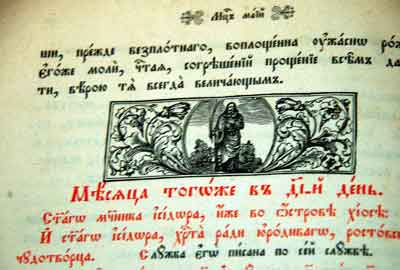 Мцⷭ҇ъ ма́їй
ши, пре́жде безпло́тнаго, воплоще́нна оу҆жа́снѡ ро́ж
є҆го́же молѝ, чт҇ⷭая, согрѣше́нїй проще́нїе всѣ̑мъ да
ти, вѣ́рою тѧ̀ всегда̀ велича́ющымъ.
Мѣ́сѧца тогѡ́же въ д҃і-й де́нь.
Ст҃а́гѡ мч҃нка і҆сі́дѡра, и҆́же во ѻ҆́стровѣ хі́ѡсѣ:
И҆ ст҃а́гѡ і҆сі́дѡра, хрⷭ҇та̀ ра́ди ю҆ро́диваго, росто́вс
чꙋдотво́рца. Слꙋ́жба є҆гѡ̀ пи́сана по се́й слꙋ́жбѣ.